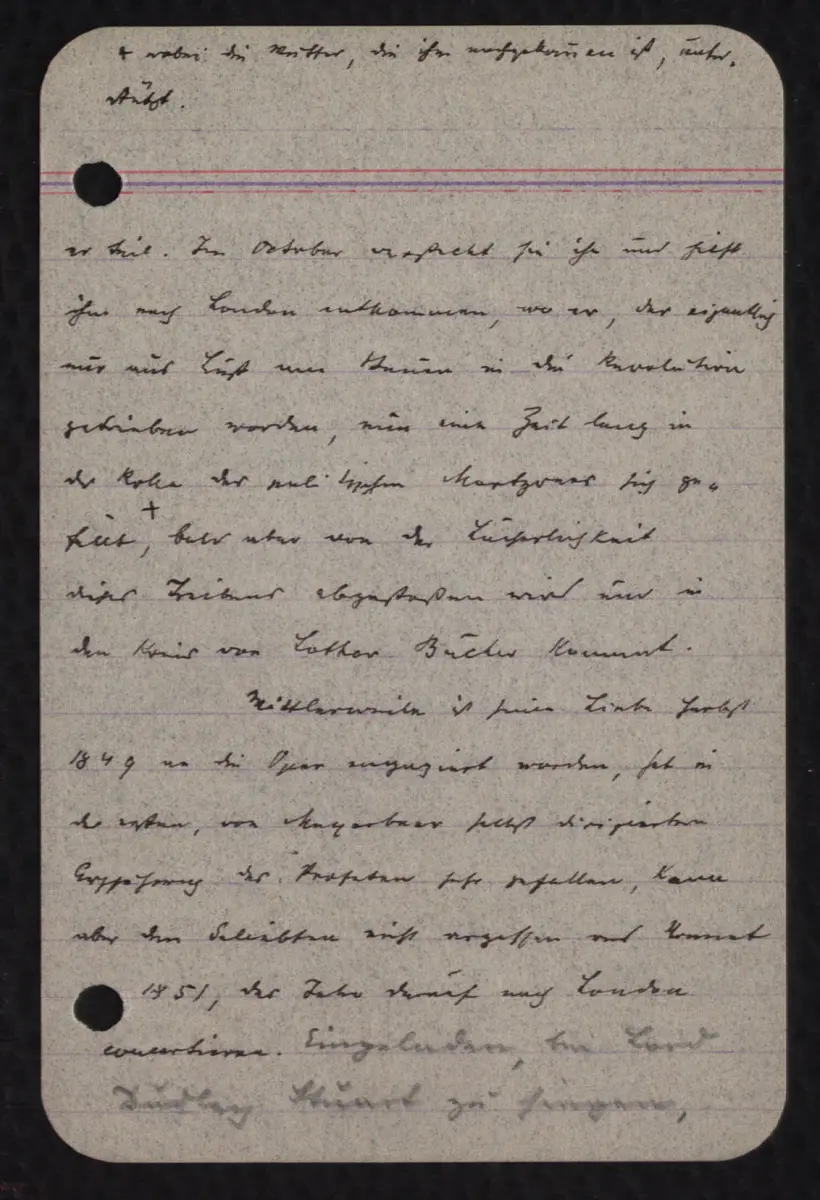 + wobei die Mutter, die ihm nachgekommen ist, unter-
stützt.
er teil. Im October versteckt sie ihn und hilft
ihm nach London entkommen, wo er, der eigentlich
nur aus Lust am Neuen in die Revolution
getrieben worden, nun eine Zeit lang in
der Rolle des politischen Martyrers sich ge-
fällt +, bald aber von der Lächerlichkeit
dieses Treibens abgestoßen wird und in
den Kreis von Lothar Bucher kommt.
Mittlerweile ist seine Liebe Herbst
1849 an die Oper engagiert worden, hat in
der ersten, von Meyerbeer selbst dirigierten
Aufführung des Profeten sehr gefallen, kann
aber den Geliebten nicht vergessen und kommt
1851, das Jahr darauf nach London
concertieren. Eingeladen, bei Lord
Dudley Stuart zu singen,